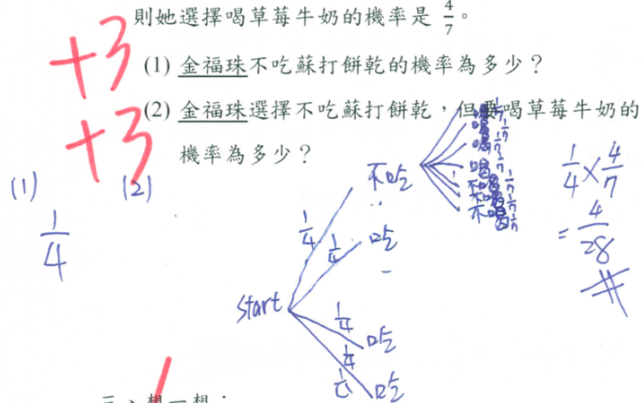 則她選擇喝草莓牛奶的機率是 4/7。
+3
(1) 金福珠不吃蘇打餅乾的機率為多少？
+3
(2) 金福珠選擇不吃蘇打餅乾，但要喝草莓牛奶的
機率為多少？
(1)
1/4
(2)
start
1/4 不吃
1/4 吃
1/4 吃
1/4 吃
喝 1/7
喝 1/7
喝 1/7
喝 1/7
不喝 1/7
不喝 1/7
不喝 1/7
1/4 × 4/7
= 4/28